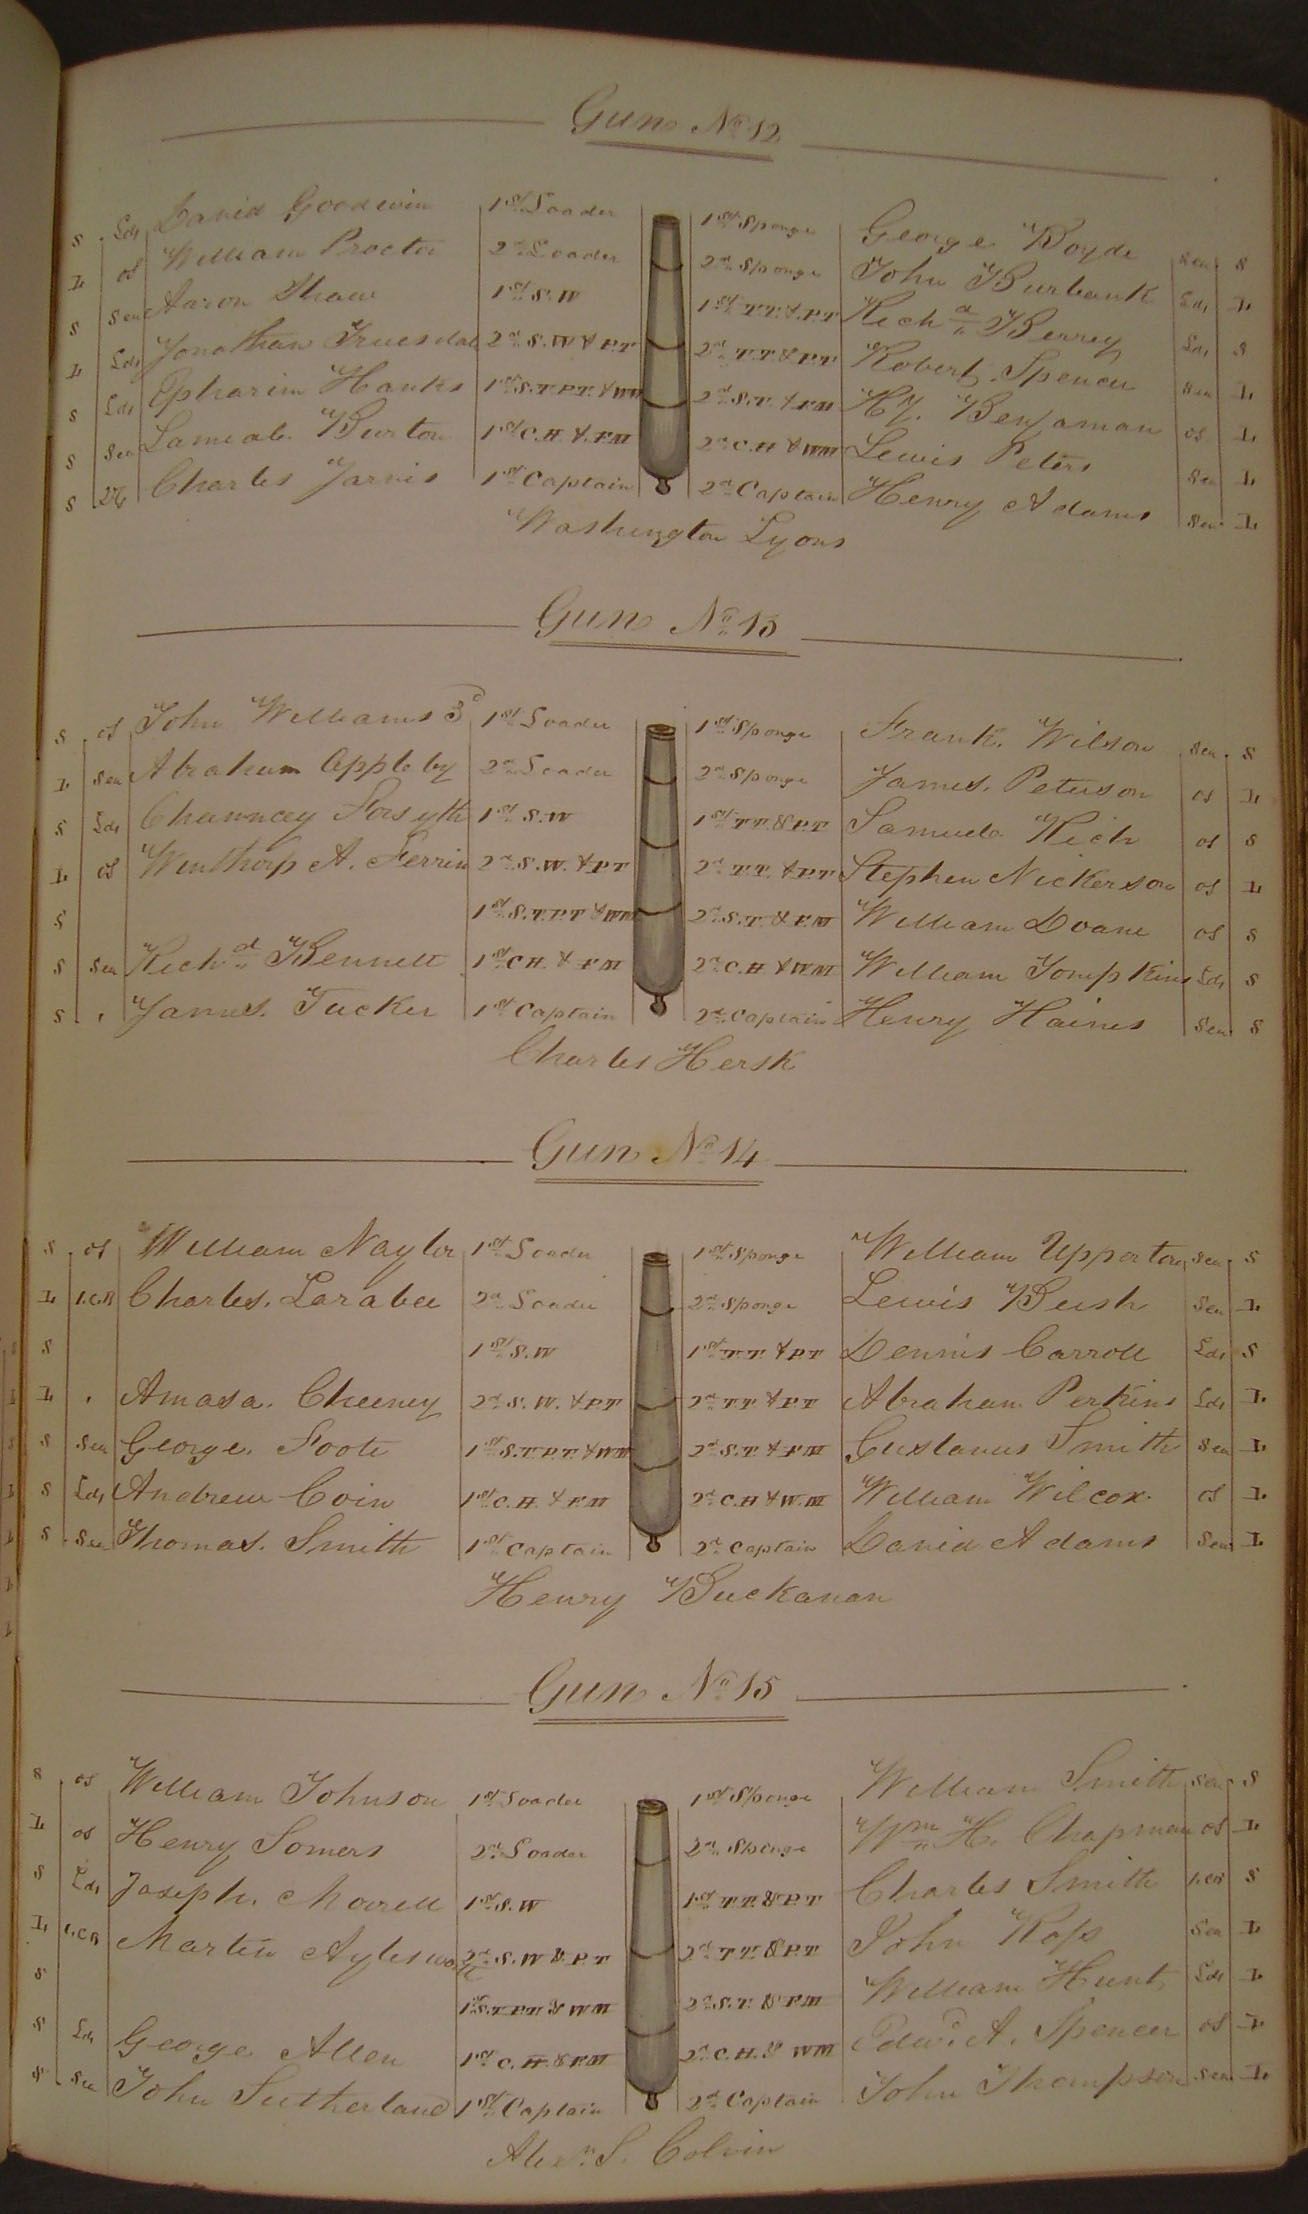 Gun No 12
S Lds David Goodwin 1st Loader 1st Sponge George Boyde Sea S
L OS William Procter 2d Loader 2d Sponge John Burbank Lds L
S Sea Aaron Shaw 1st S.W 1st T.T. & P.T Richd Berrey Lds S
L Lds Jonathan Truesdal 2d S.W & P.T 2d T.T & P.T Robert Spencer Sea L
S Lds Epharim Hanks 1st S.T.P.T. & WM 2d S.T. & F.M Hy. Benjaman OS L
S Sea Lameale Burton 1st C.H. & F.M 2d C.H & WM Lewis Peters Sea L
S Charles Jarvis 1st Captain 2d Captain Henry Adams Sea L
Washington Lyons
Gun No 13
S OS John Williams 3d 1st Loader 1st Sponge Frank Wilson Sea S
L Sea Abraham Appleby 2d Loader 2d Sponge James Peterson OS L
S Lds Chawncey Forsyth 1st S.W 1st T.T & P.T Samuel Rich OS S
L OS Winthorp A. Ferrin 2d S.W. & P.T 2d T.T. & P.T Stephen Nickerson OS L
S 1st S.T.P.T & WM 2d S.T & F.M William Doane OS S
S Sea Richd Bennett 1st C.H. & F.M 2d C.H & WM William Tompkins Lds S
S James Tucker 1st Captain 2d Captain Henry Haines Sea S
Charles Hersk
Gun No 14
S OS William Naylor 1st Loader 1st Sponge William Upperton Sea S
L 1.C.B Charles Larabee 2d Loader 2d Sponge Lewis Bush Sea L
S 1st S.W 1st T.T. & P.T Dennis Carroll Lds S
L Amasa Cheeney 2d S.W. & P.T 2d T.T & P.T Abraham Perkins Lds L
S Sea George Foote 1st S.T.P.T. & WM 2d S.T & F.M Gustavus Smith Sea L
S Lds Andrew Coin 1st C.H. & F.M 2d C.H & W.M William Wilcox OS L
S Sea Thomas Smith 1st Captain 2d Captain David Adams Sea L
Henry Buckanan
Gun No 15
S OS William Johnson 1st Loader 1st Sponge William Smith Sea S
L OS Henry Somers 2d Loader 2d Sponge Wm H. Chapman OS L
S Lds Joseph Morrell 1st S.W 1st T.T. & P.T Charles Smith 1.CB S
L 1.C.B Martin Aylesworth 2d S.W & P.T 2d T.T. & P.T John Ross Sea L
S 1st S.T.P.T & WM 2d S.T. & F.M William Hunt Lds L
S Lds George Allen 1st C.H. & F.M 2d C.H. & WM Edwd. A. Spencer OS L
S Sea John Sutherland 1st Captain 2d Captain John Thompson Sea L
Alexr. S. Colvin